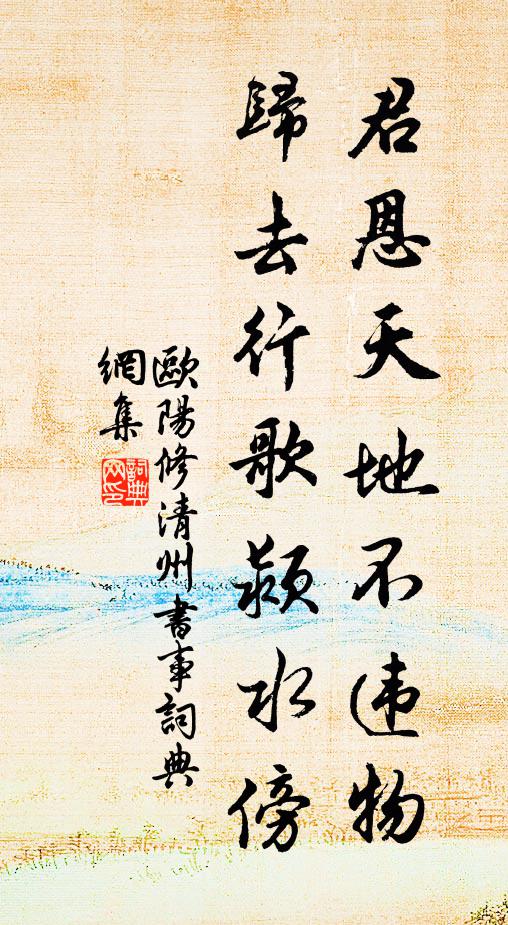 君恩天地不违物
歸去行歌潁水傍
歐陽修清州書事詞典
網集
詞典
网印